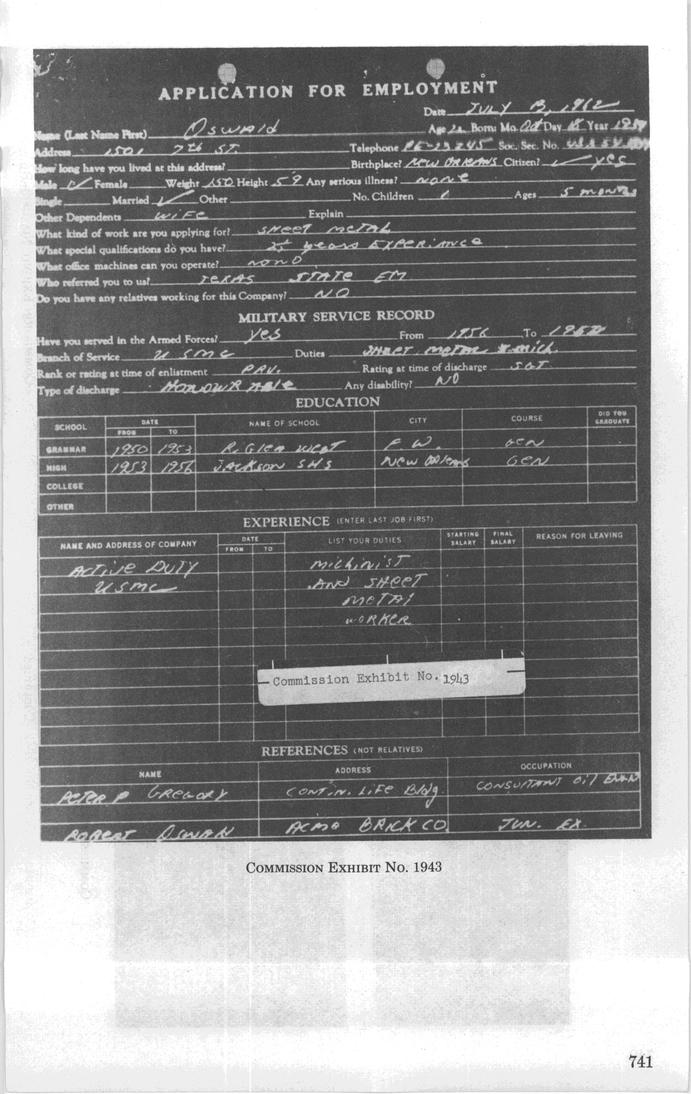 APPLICATION FOR EMPLOYMENT
Date JULY 13, 1962
Name (Last Name First) Oswald Age 22 Born: Mo. Oct Day 18 Year 1939
Address 1501 7th ST. Telephone PE-23245 Soc. Sec. No.
How long have you lived at this address? Birthplace? NEW ORLEANS Citizen? ✓ yes
Male ✓ Female Weight 150 Height 5 9 Any serious illness? NONE
Single Married ✓ Other No. Children 1 Ages 5 months
Other Dependents WIFE Explain
What kind of work are you applying for? SHEET METAL
What special qualifications do you have? years EXPERIANCE
What office machines can you operate? NONO
Who referred you to us? TEXAS STATE EM
Do you have any relatives working for this Company? NO
MILITARY SERVICE RECORD
Have you served in the Armed Forces? Yes From 1956 To
Branch of Service U SMC Duties SHEET METAL
Rank or rating at time of enlistment PRV. Rating at time of discharge SGT
Type of discharge HONOURABLE Any disability? NO
EDUCATION
SCHOOL DATE NAME OF SCHOOL CITY COURSE DID YOU GRADUATE
FROM TO
GRAMMAR 1950 1953 WEST F. W. GEN
HIGH 1953 1956 JACKSON SHS NEW ORLEANS GEN
COLLEGE
OTHER
EXPERIENCE (ENTER LAST JOB FIRST)
NAME AND ADDRESS OF COMPANY DATE LIST YOUR DUTIES STARTING SALARY FINAL SALARY REASON FOR LEAVING
FROM TO
ACTIVE DUTY MICHINIST
USMC AND SHEET
METAL
WORKER
Commission Exhibit No. 1943
REFERENCES (NOT RELATIVES)
NAME ADDRESS OCCUPATION
PETER P GREGORY CONTIN. LIFE Bldg. CONSULTANT OIL
ROBERT ACME BRICK CO. JUN. EX.
COMMISSION EXHIBIT NO. 1943
741